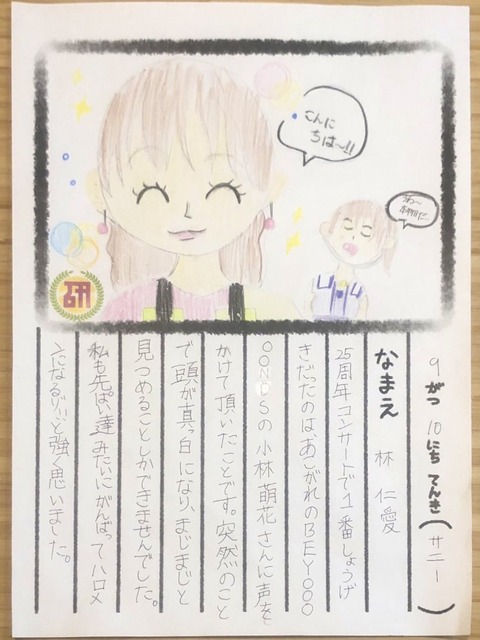 こんに
ちは〜!!
わ〜
本物だ
研
9がつ10にちてんき(サニー)
なまえ 林仁愛
25周年コンサートで1番しょうげ
きだったのは、あこがれのBEYOOO
OONDSの小林萌花さんに声を
かけて頂いたことです。突然のこと
で頭が真っ白になり、まじまじと
見つめることしかできませんでした。
私も先ぱい達みたいにがんばってハロメ
ンになるぞ!!と強く思いました。